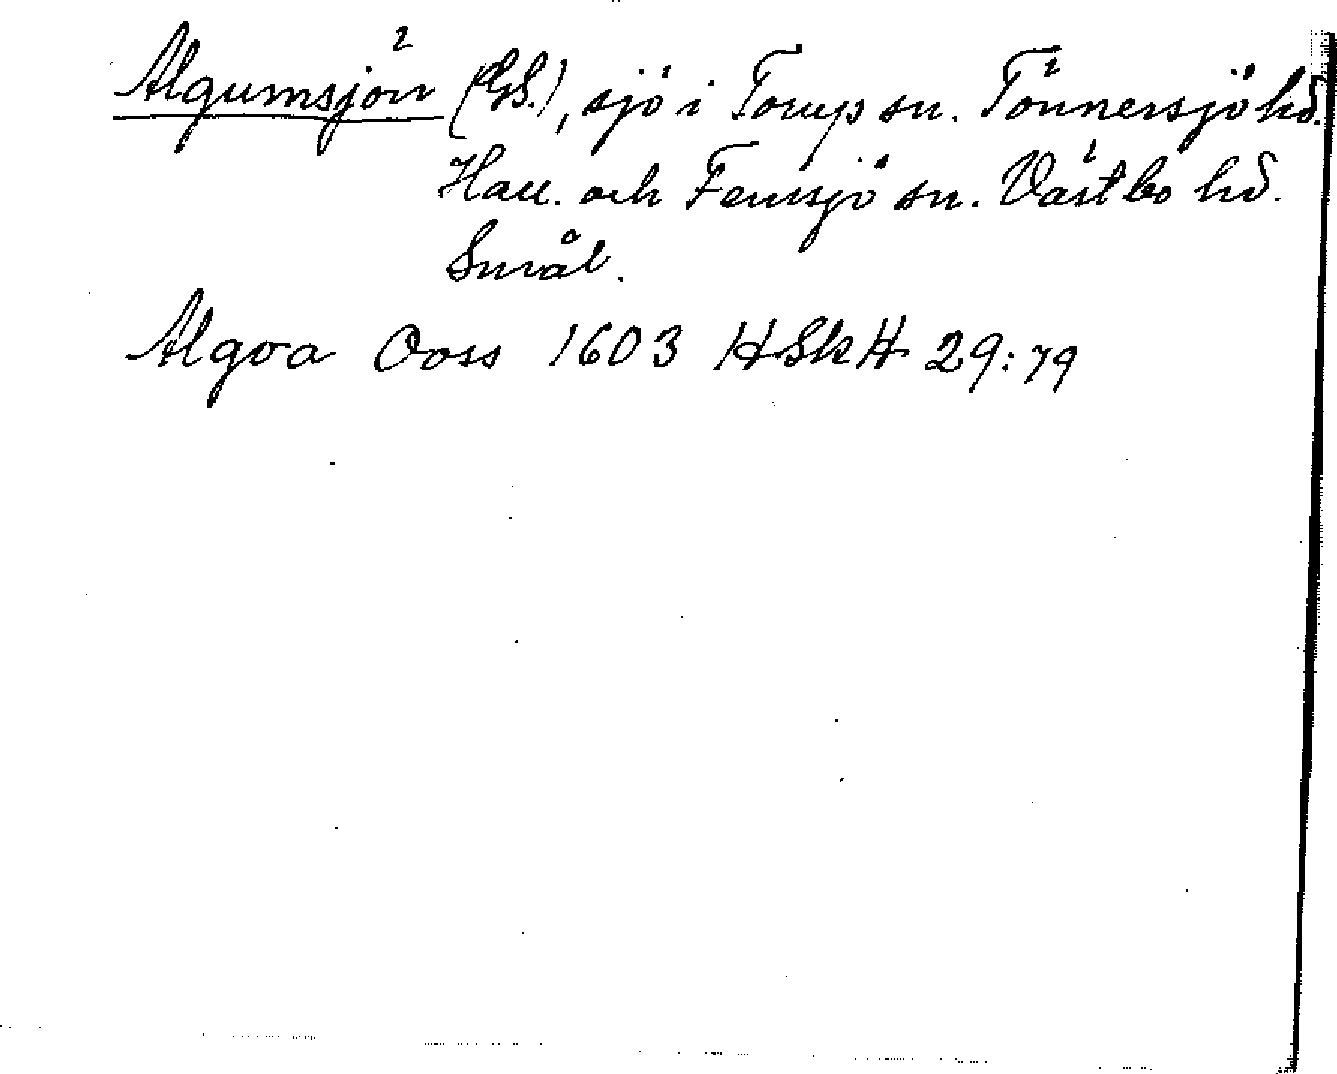 Algumsjön (GS.), sjö i Torup sn. Tönnersjö hd.
Hall. och Femsjö sn. Västbo hd.
Smål.
Algoa Ooss 1603 HSkH 29:79